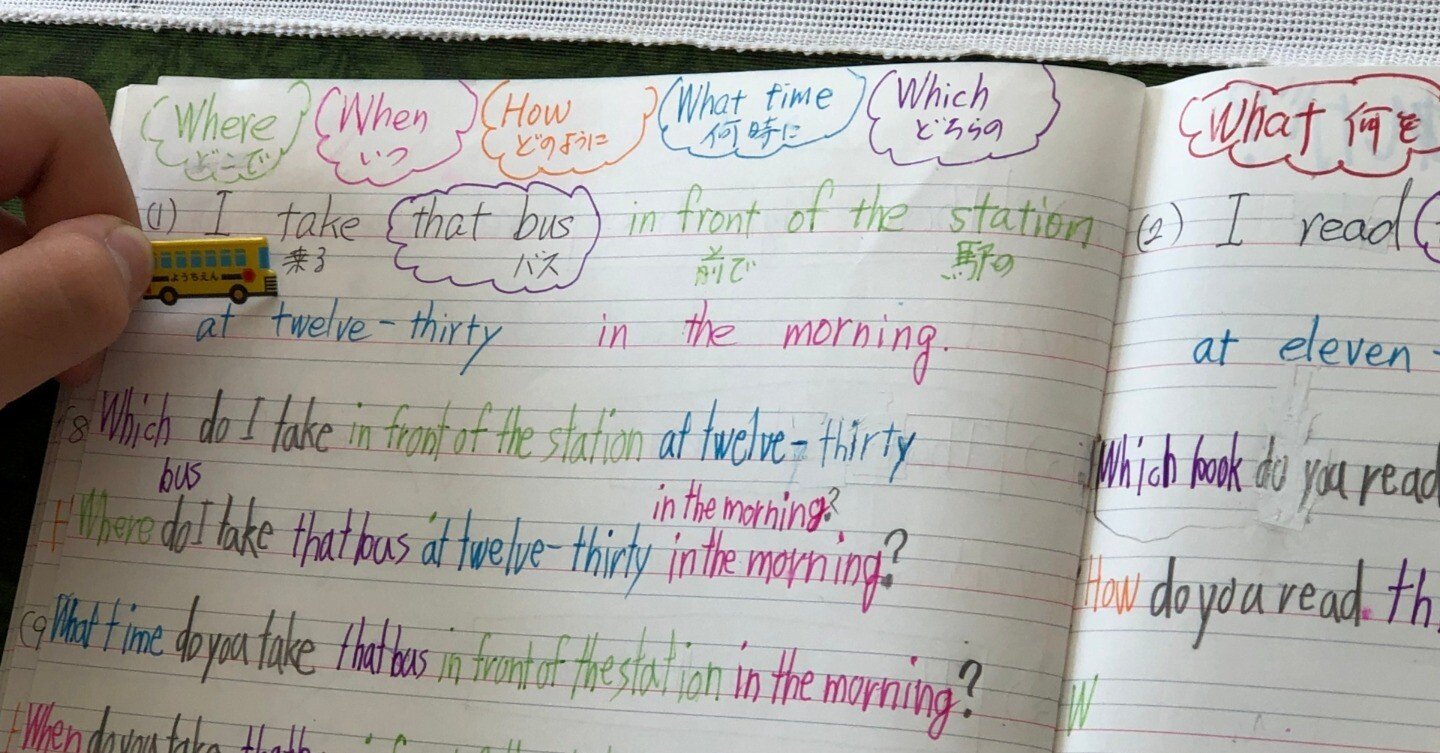 Where When How What time Which
どこで いつ どのように 何時に どちらの
(1) I take that bus in front of the station
乗る バス 前で 駅の
ようちえん
at twelve-thirty in the morning.
Which do I take in front of the station at twelve-thirty
bus in the morning?
Where do I take that bus at twelve-thirty in the morning?
What time do you take that bus in front of the station in the morning?
When do you take
What 何を
(2) I read
at eleven-
Which book do you read
How do you read th
W